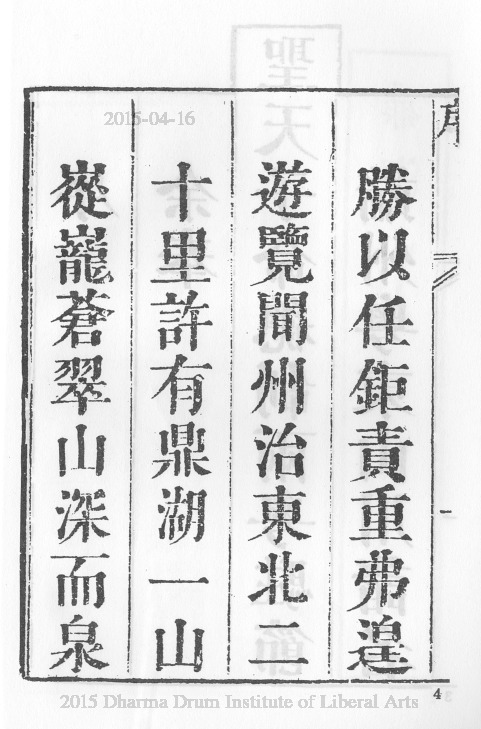 勝以任鉅責重弗遑
遊覽聞州治東北二
十里許有鼎湖一山
嵸巃蒼翠山深而泉
2015-04-16
2015 Dharma Drum Institute of Liberal Arts
4